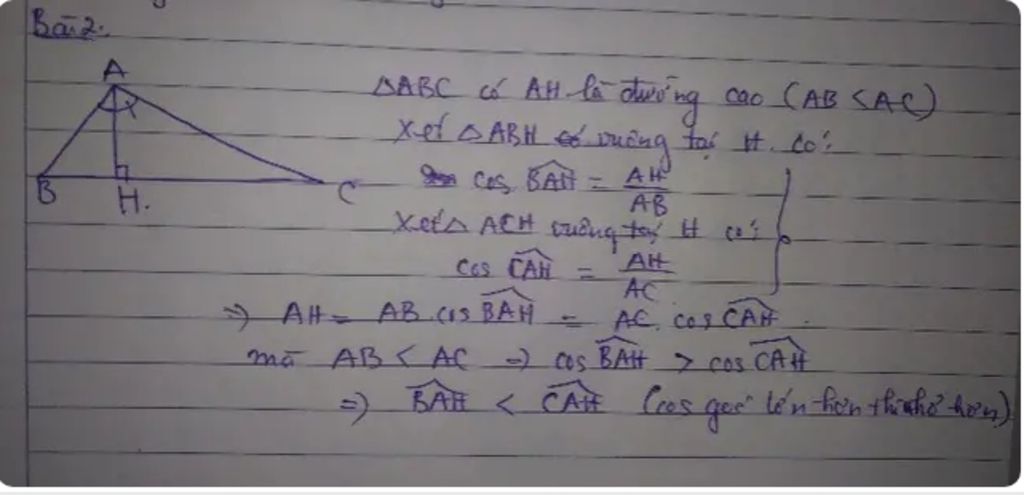 Bài 2.
A
B
H.
C
△ABC có AH là đường cao (AB < AC)
Xét △ABH có vuông tại H. Có:
cos BAH = AH/AB
Xét △ ACH vuông tại H có:
cos CAH = AH/AC
=> AH = AB. cos BAH = AC. cos CAH.
mà AB < AC => cos BAH > cos CAH
=> BAH < CAH (cos góc lớn hơn thì nhỏ hơn)